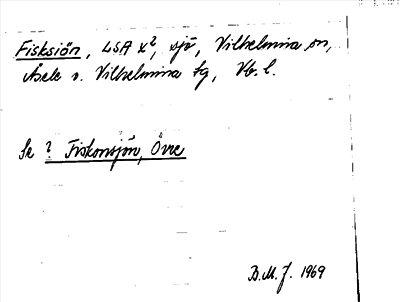 Fisksiön, LSA x², sjö, Vilhelmina sn,
Åsele o. Vilhelmina tg, Vb. l.
Se ? Fiskonsjön, Övre
B.M.J. 1969